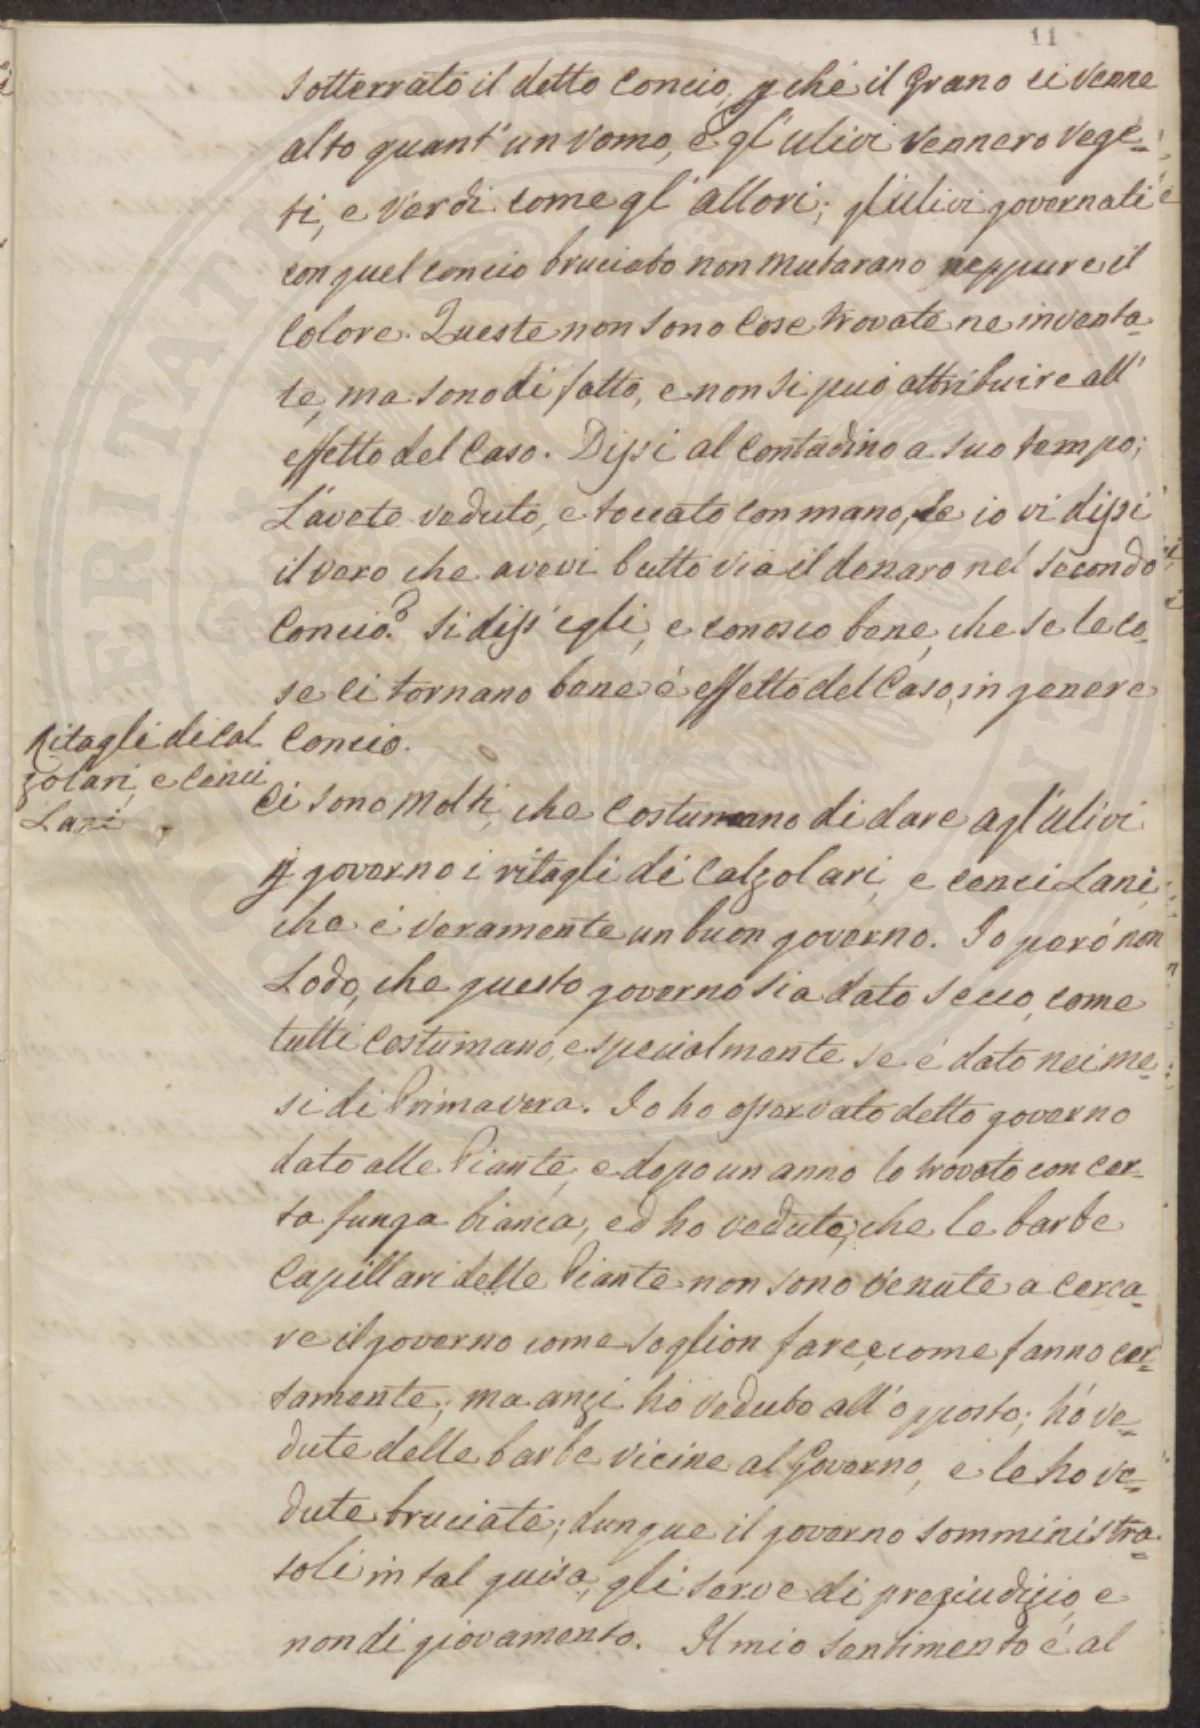 11
sotterrato il detto Concio, p che il Grano ci venne
alto quant' un Vomo, e gl' ulivi vennero vege=
ti, e verdi come gl' allori; gl'ulivi governati
con quel concio bruciato non mutarano neppure il
Colore. Queste non sono Cose trovate ne inventa=
te, ma sono di fatto, e non si può attribuire all'
effetto del Caso. Dissi al Contadino a suo tempo;
L'avete veduto, e toccato con mano, se io vi dissi
il vero che avevi butto via il denaro nel secondo
Concio? Si diss' egli, e conosco bene, che se le co=
se ci tornano bene è effetto del Caso, in genere
Concio.
Ritagli di Cal
zolari, e Cenci
Lani
Ci sono Molti, che Costumano di dare agl'ulivi
p governo i ritagli di Calzolari, e cenci Lani,
che è veramente un buon governo. Io però non
Lodo, che questo governo sia dato secco, come
tutti Costumano, e specialmente se è dato nei me=
si di Primavera. Io ho osservato detto governo
dato alle Piante, e dopo un anno lo trovato con cer=
ta funga bianca, ed ho veduto, che le barbe
Capillari delle Piante non sono venute a Cerca=
re il governo come soglion fare, e come fanno cer=
tamente; ma anzi hò veduto all' opposto; hò ve=
dute delle barbe vicine al Governo, e le ho ve=
dute bruciate; dunque il governo somministra=
toli in tal guisa, gli serve di pregiudizio, e
non di giovamento. Il mio sentimento è al